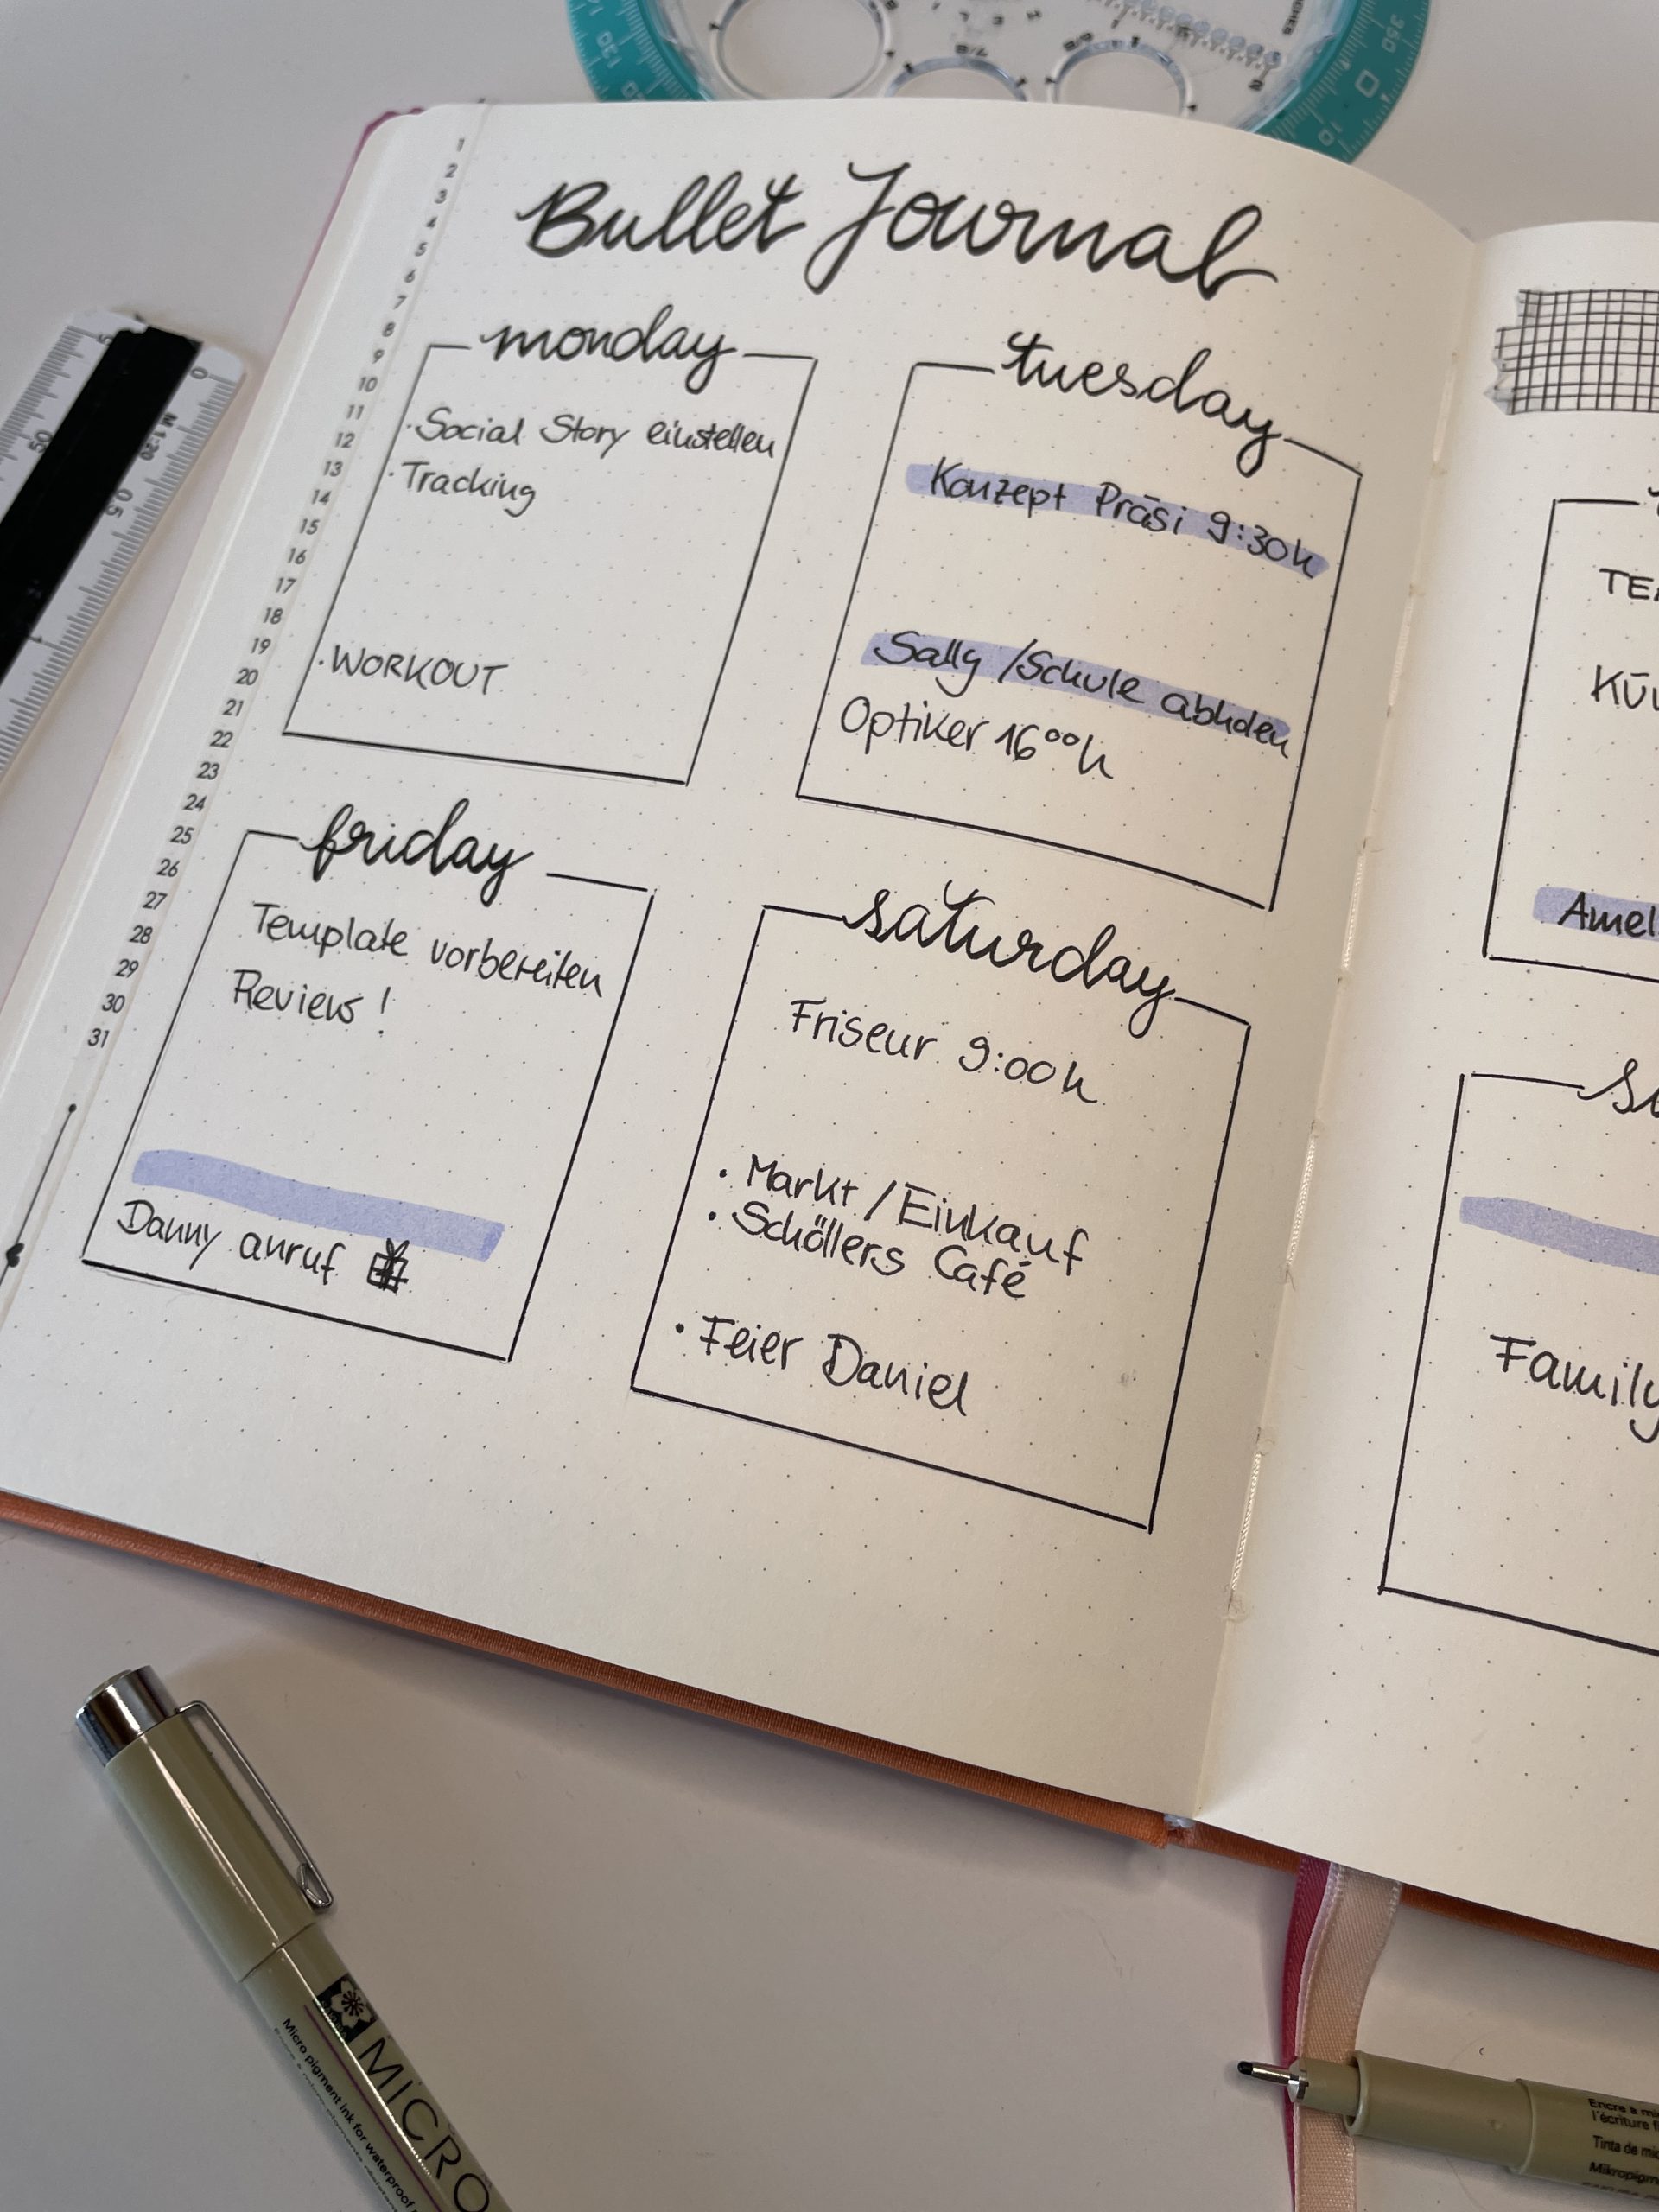 1
2
3
4
5
6
7
8
9
10
11
12
13
14
15
16
17
18
19
20
21
22
23
24
25
26
27
28
29
30
31
Bullet Journal
monday
· Social Story einstellen
· Tracking
· WORKOUT
tuesday
Konzept Präsi 9:30h
Sally /Schule abholen
Optiker 16⁰⁰h
friday
Template vorbereiten
Review !
Danny anruf
saturday
Friseur 9:00h
· Markt / Einkauf
· Schöllers Café
· Feier Daniel
Amel
Family
MICRO
Micro pigment ink for waterproof
Encre à mi
l'écriture f
Tinta de mic
Mikropigm
M 1:20